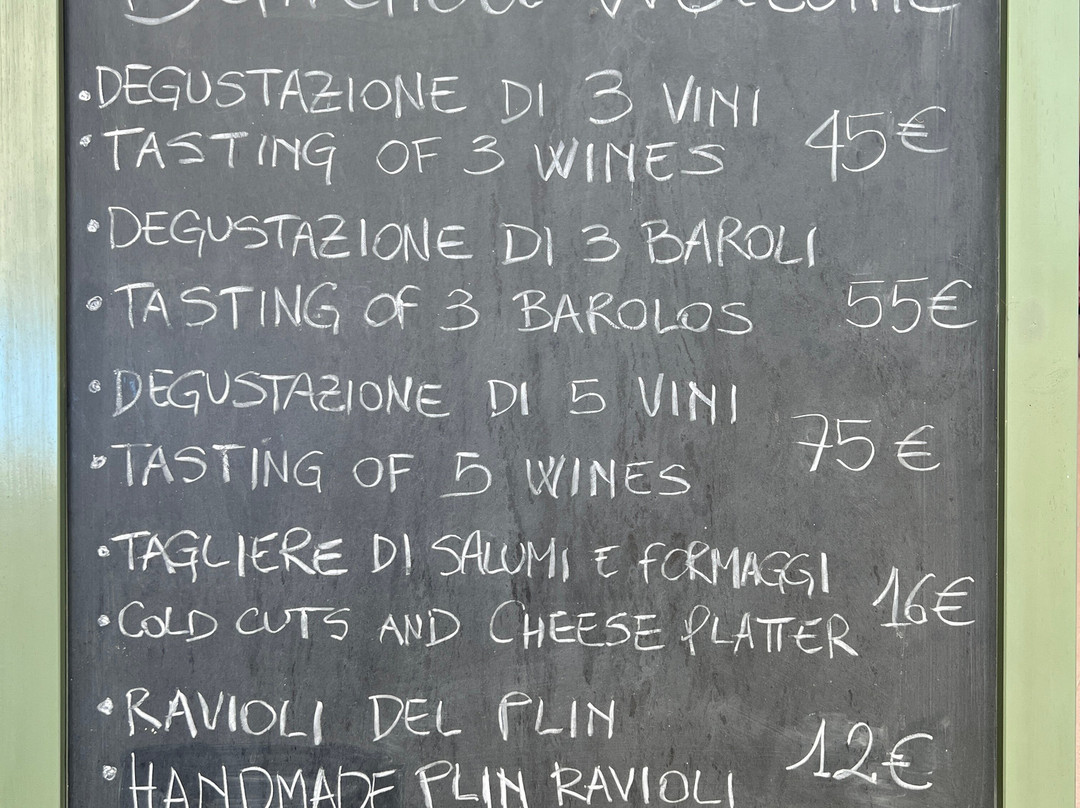 Benvenuti Welcome
• DEGUSTAZIONE DI 3 VINI
• TASTING OF 3 WINES 45€
• DEGUSTAZIONE DI 3 BAROLI
• TASTING Of 3 BAROLOS 55€
• DEGUSTAZIONE DI 5 VINI
• TASTING OF 5 WINES 75€
• TAGLIERE DI SALUMI E fORMAGGI
• COLD CUTS AND CHEESE PLATTER 16€
• RAVIOLI DEL PLIN
• HANDMADE PLIN RAVIOLI 12€